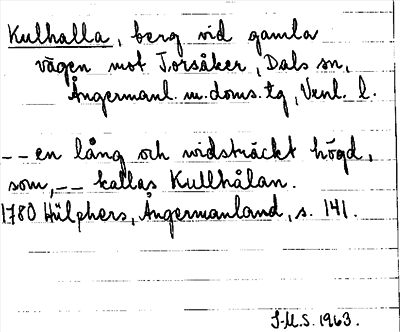 Kulhalla, berg vid gamla
vägen mot Torsåker, Dals sn,
Ångermanl. m. doms. tg, Vnl. l.
-- en lång och vidsträckt högd,
som, -- kallas Kullhålan.
1780 Hülphers, Ångermanland, s. 141.
S.M.S. 1963.